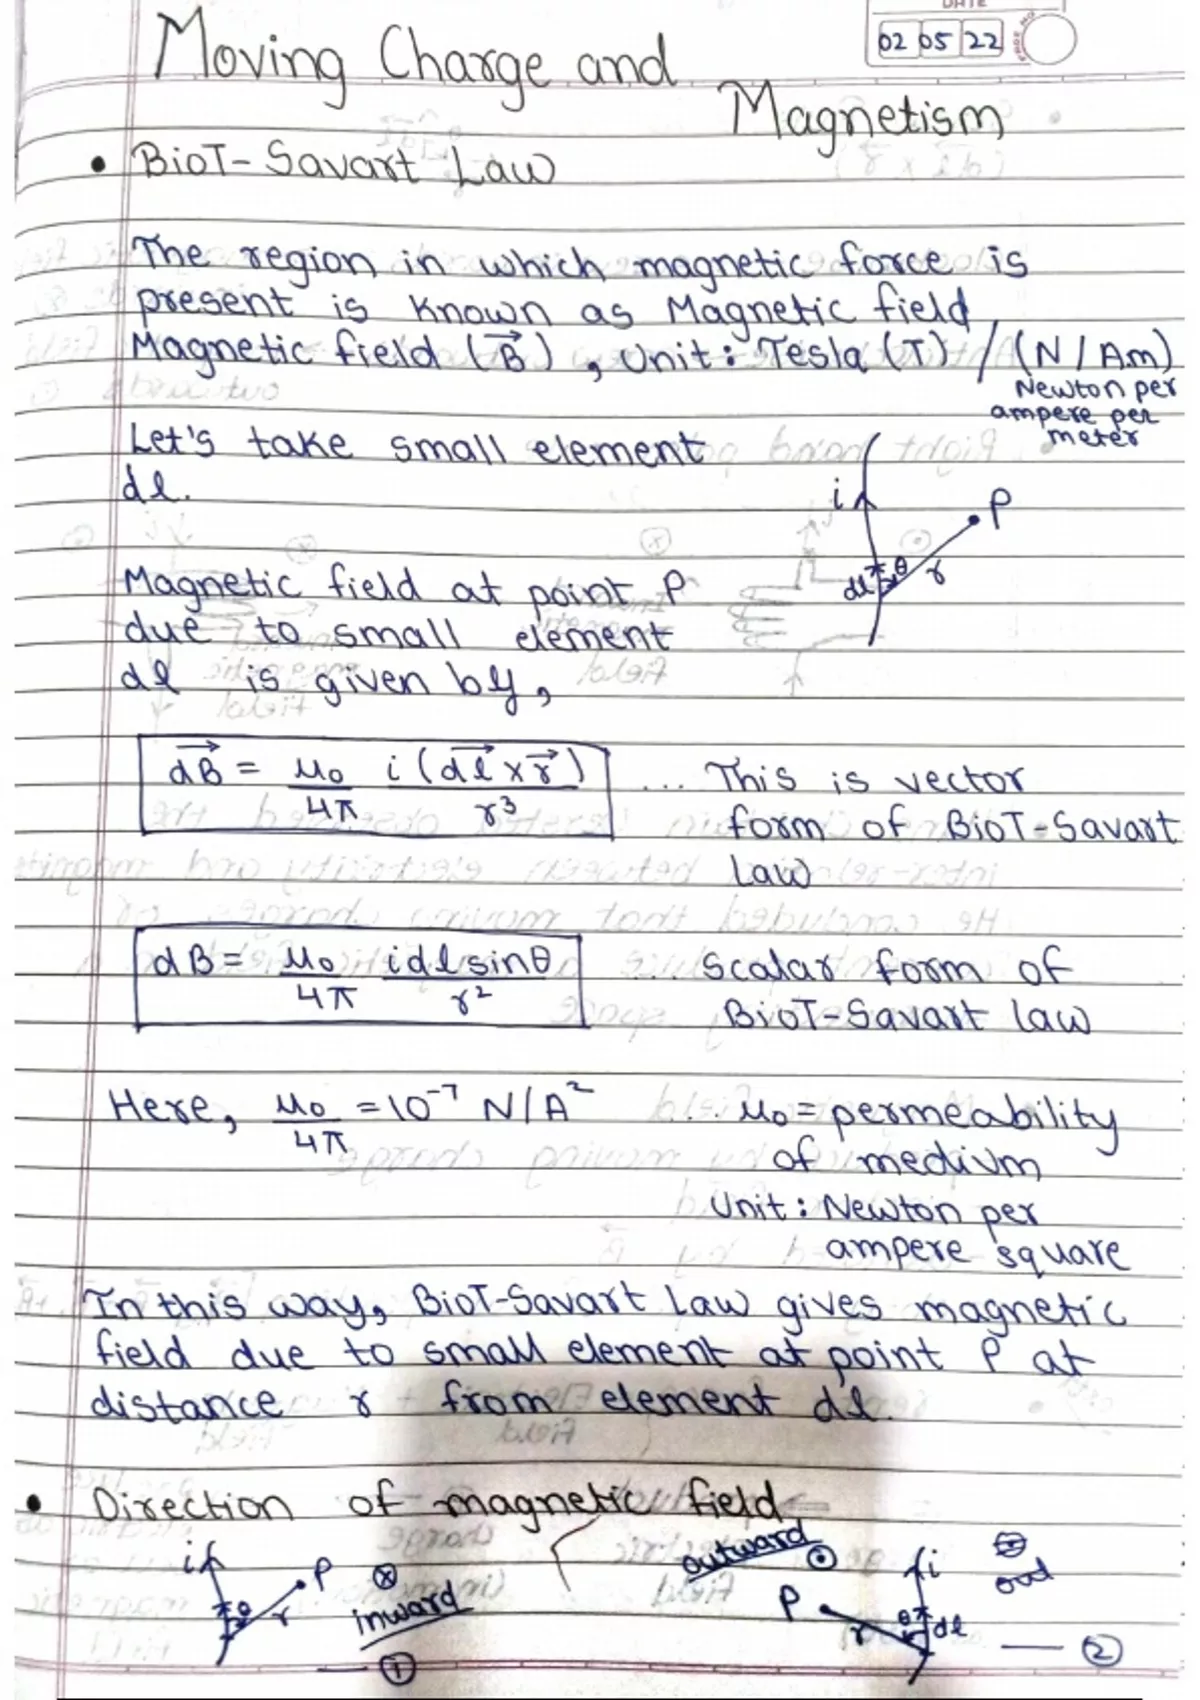 DATE
02 05 22
PAGE NO
Moving Charge and
Magnetism
• BioT-Savart Law
The region in which magnetic force is
present is known as Magnetic field.
Magnetic field (B⃗), Unit: Tesla (T) / (N/A.m)
Newton per
ampere per
meter
Let's take small element
dl.
i
P
dl θ r
Magnetic field at point P
due to small element
dl is given by,
dB⃗ = μ₀/4π i(dl⃗ × r⃗)/r³ ... This is vector
form of BioT-Savart
Law
dB = μ₀/4π idlsinθ/r² ... Scalar form of
BioT-Savart law
Here, μ₀/4π = 10⁻⁷ N/A² .. μ₀ = permeability
of medium
Unit: Newton per
ampere square
In this way, BioT-Savart Law gives magnetic
field due to small element at point P at
distance r from element dl.
• Direction of magnetic field
i P θ r
⊗
inward
— ①
outward ⊙
P r θ dl i
— ②